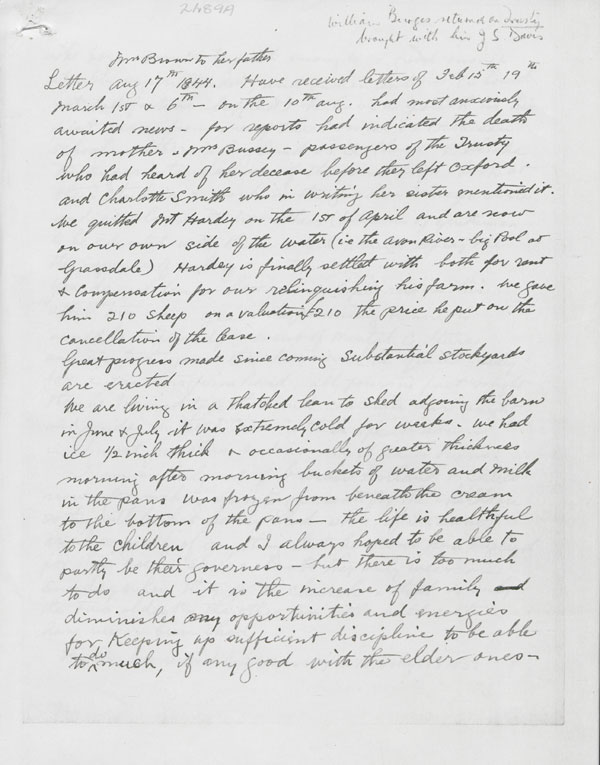 2489A
William Burges returned on Trusty
brought with him J S Davis
Mrs Brown to her father
Letter Aug 17th 1844. Have received letters of Feb 15th 19th
March 1st & 6th – on the 10th aug. had most anxiously
awaited news – for reports had indicated the death
of mother. Mrs Bussey – passengers of the Trusty
who had heard of her decease before they left Oxford.
and Charlotte Smith who in writing her sister mentioned it.
We quitted Mt Hardey on the 1st of April and are now
on our own side of the water (i.e the Avon River – big Pool at
Grassdale) Hardey is finally settled with both for rent
& Compensation for our relinquishing his farm. We gave
him 210 sheep on a valuation £210 the price he put on the
cancellation of the lease.
Great progress made since coming Substantial stockyards
are erected
We are living in a thatched lean to shed adjoing the barn
in June & July it was extremely cold for weeks. We had
ice 1/2 inch thick & occasionally of greater thickness
morning after morning buckets of water and milk
in the pans was frozen from beneath the cream
to the bottom of the pans – the life is healthful
to the children and I always hoped to be able to
partly be their governess – but there is too much
to do and it is the increase of family
diminishes my opportunities and energies
for Keeping up sufficient discipline to be able
to do much, if any good with the elder ones –